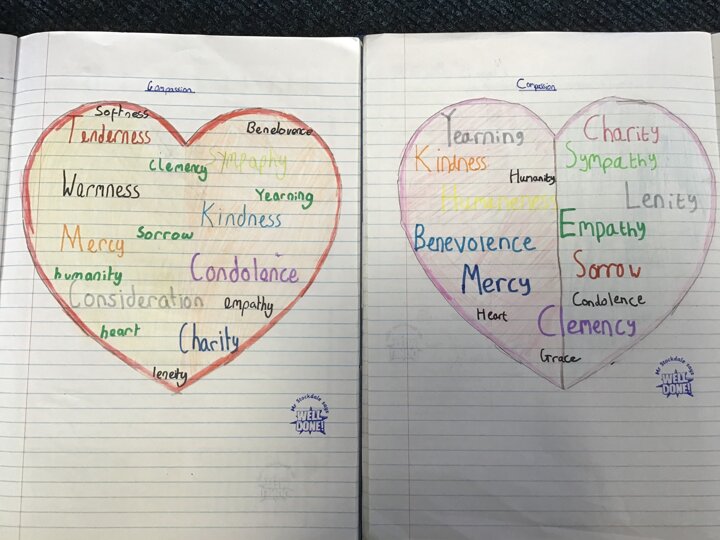 Compassion
Softness
Tenderness
Benelovence
Clemency
Sympaphy
Warmness
Yearning
Kindness
Sorrow
Mercy
humanity
Condolance
Consideration
empathy
heart
Charity
leneity
Mr Stockdale says
WELL
DONE!
Compassion
Yearning
Charity
Kindness
Sympathy
Humanity
Lenity
Empathy
Benevolence
Sorrow
Mercy
Condolence
Heart
Clemency
Grace
Mr Stockdale says
WELL
DONE!